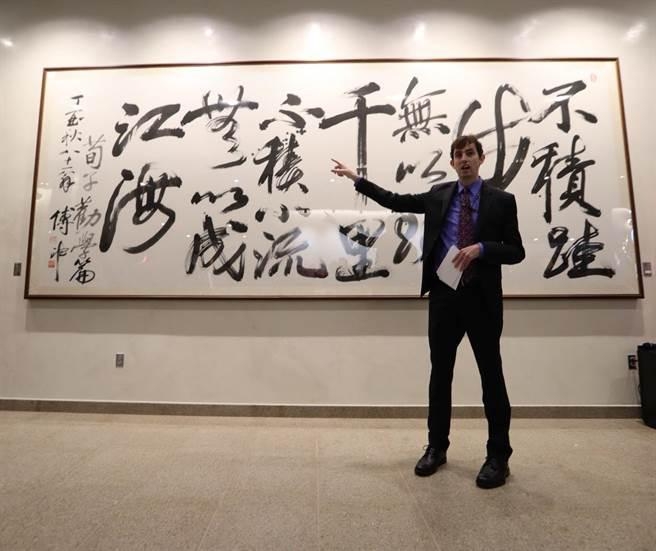 不積跬
步
無以
千里
不積小流
無以成
江海
荀子勸學篇
丁酉秋八十 傅申